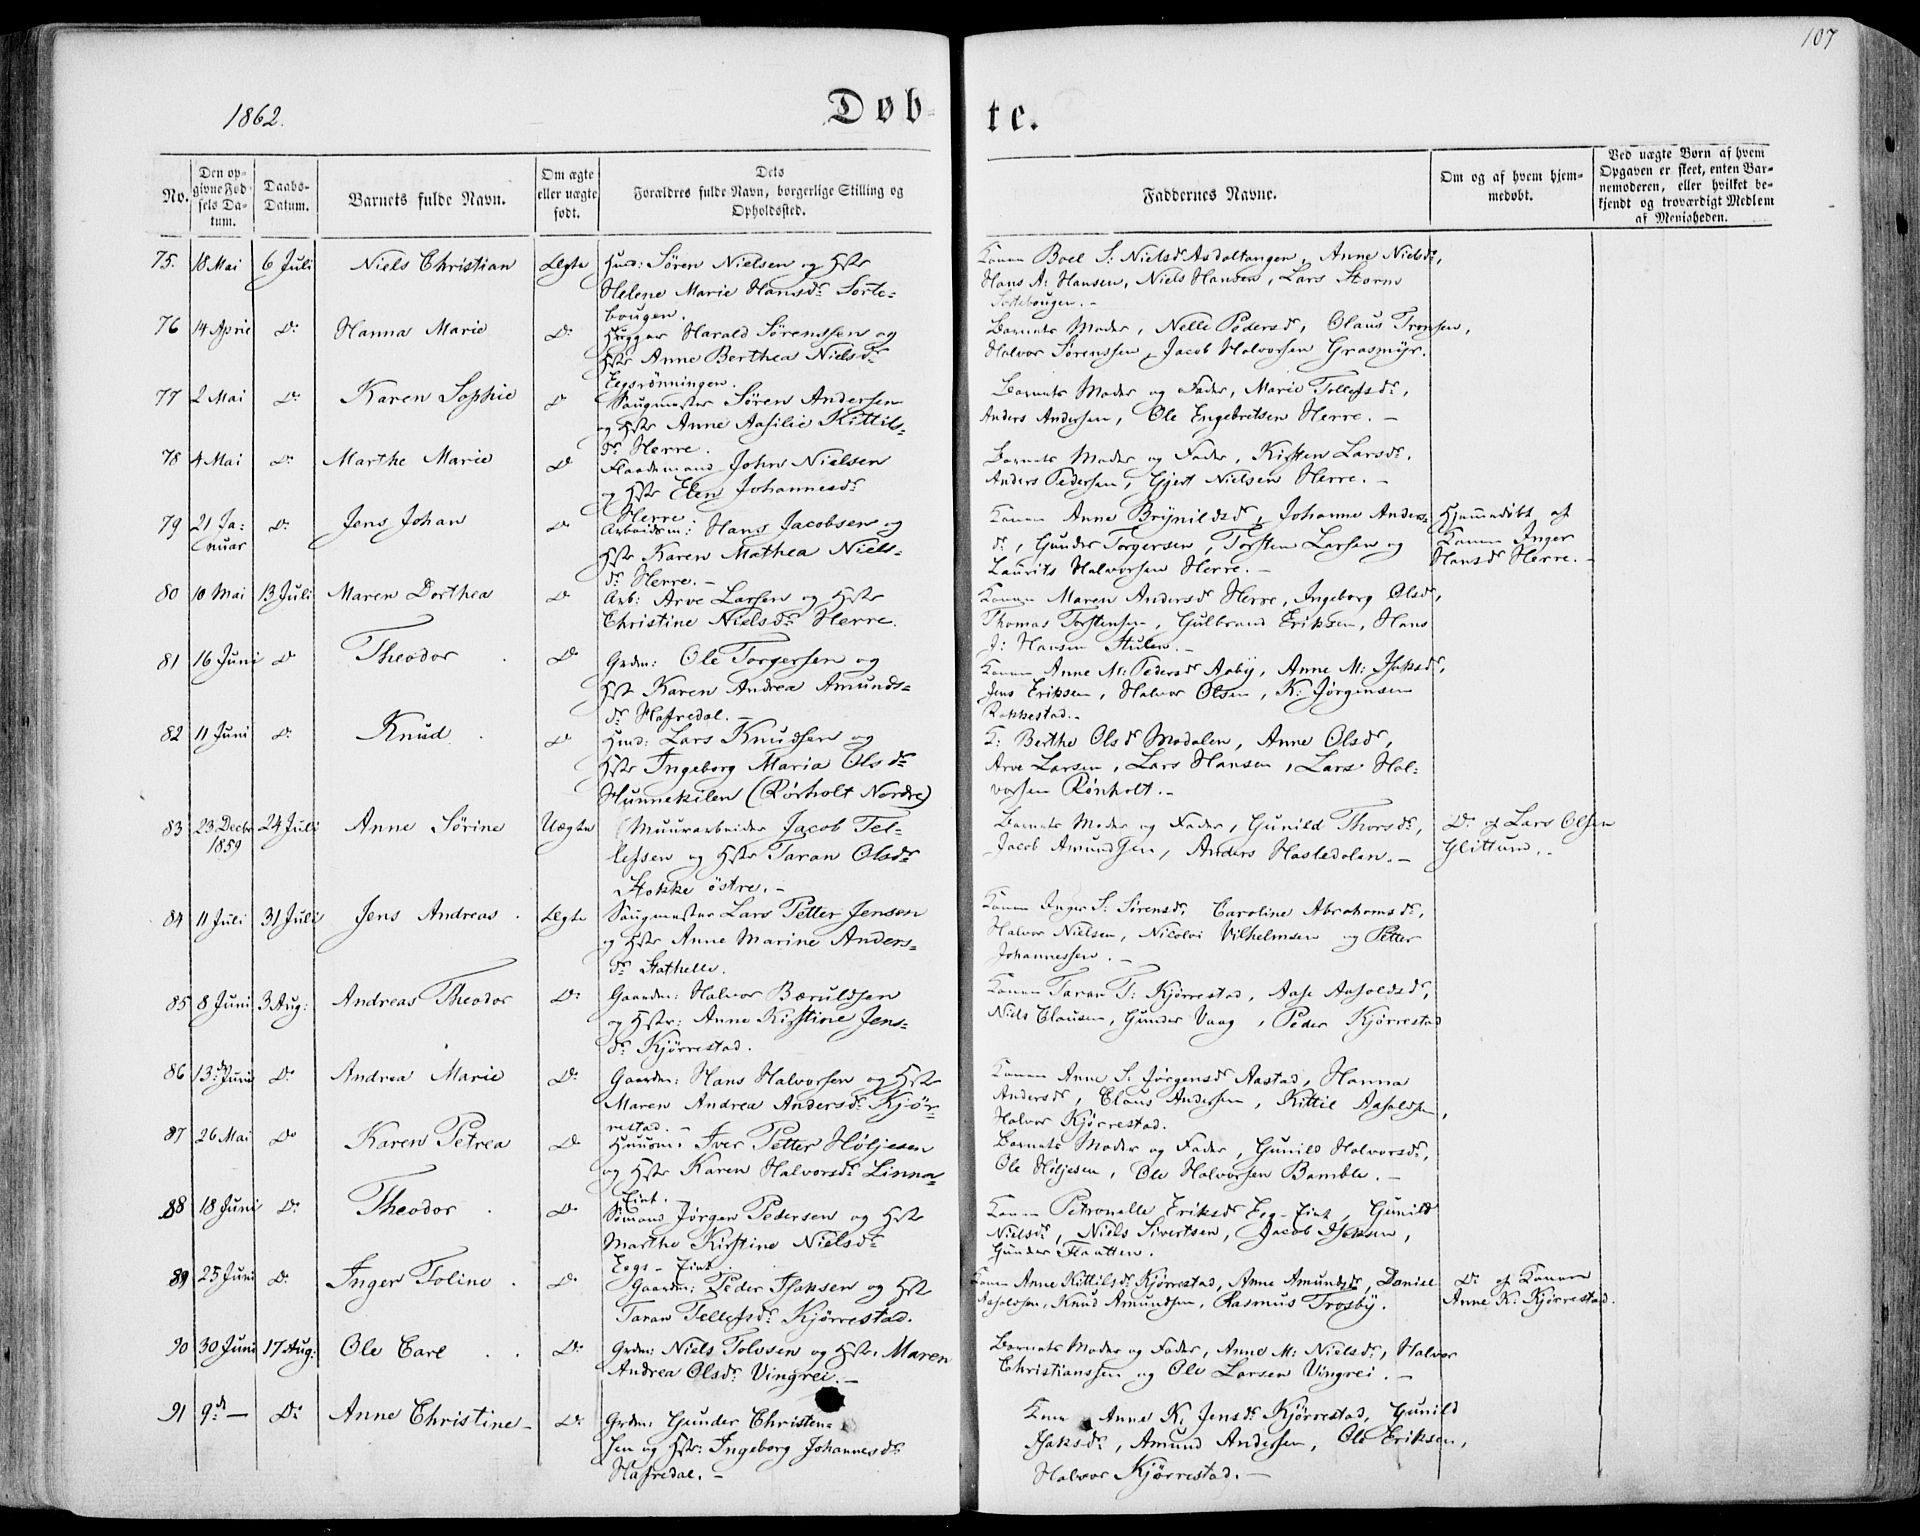 107
1862.
Døbte.
No.
Den opgivne Fødsels Datum.
Daabs-Datum.
Barnets fulde Navn.
Om ægte eller uægte født.
Dets Forældres fulde Navn, borgerlige Stilling og Opholdssted.
Faddernes Navne.
Om og af hvem hjemmedøbt.
Ved uægte Børn af hvem Opgaven er skeet, enten Barnemoderen, eller hvilket bekjendt og troværdigt Medlem af Menigheden.
75. 18 Mai 6 Juli Niels Christian Ægte Huusm: Søren Nielsen og Hstr
Helene Marie Hansdr Sorte-
bougen.
Konen Boel S. Nielsdr Asdaltangen, Anne Nielsdr,
Hans A: Hansen, Niels Hansen, Lars Storm
Sortebougen. -
76 14 April Do Hanna Marie Do Hugger Harald Sørenssen og
Hstr Anne Berthea Nielsdr
Eegsrönningen.
Barnets Moder, Nelle Pedersdr, Olaus Tronsen,
Halvor Sørenssen, Jacob Halvorsen Grasmyr.
77 2 Mai Do Karen Sophie Do Saugmester Søren Andersen
og Hstr Anne Aasilie Kittils-
dr Herre.
Barnets Moder og Fader, Marie Tollefsdr,
Anders Andersen, Ole Engebretsen Herre. -
78 4 Mai Do Marthe Marie Do Flaademand John Nielsen
og Hstr Elen Johannesdr
Herre
Barnets Moder og Fader, Kirsten Larsdr,
Anders Pedersen, Gjert Nielsen Herre. -
79 21 Ja-
nuar Do Jens Johan Do Arbeidsm: Hans Jacobsen og
Hstr Karen Mathea Niels-
dr Herre. -
Konen Anne Brynildsdr, Johanne Anders-
dr, Gunder Torgersen, Torsten Larsen og
Laurits Halvorsen Herre. -
Hjemmedöbt af
Konen Inger
Hansdr Herre. -
80 10 Mai 13 Juli Maren Dorthea Do Arb: Arve Larsen og Hstr
Christine Nielsdr Herre.
Konen Maren Andersdr Herre, Ingeborg Olsdr,
Thomas Torstensen, Gulbrand Eriksen, Hans
J: Hansen Stulen. -
81 16 Juni Do Theodor Do Grdm: Ole Torgersen og
Hst Karen Andrea Amunds-
dr Hafredal. -
Konen Anne M: Pedersdr Aaby, Anne M: Isaksdr,
Jens Eriksen, Halvor Olsen, K: Jørgensen
Rakkestad. -
82 11 Juni Do Knud Do Husd: Lars Knudsen og
Hstr Ingeborg Maria Olsdr
Hunnekilen (Rörholt Nordre)
K: Berthe Olsdr Modalen, Anne Olsdr,
Arve Larsen, Lars Hansen, Lars Hal-
vorsen Rönholt. -
83 23 Decbr
1859 24 Juli Anne Sörine Uægte (Muurarbeider Jacob Tel-
lefsen og Hstr Taran Olsdr
Stokke östre. -
Barnets Moder og Fader, Gunild Thorsdr,
Jacob Amundsen, Anders Hasledalen. -
Do af Lars Olsen
Glittum. -
84 11 Juli 31 Juli Jens Andreas Ægte Saugmester Lars Petter Jensen
og Hstr Anne Marine Anders-
dr Stathelle.
Konen Inger S. Sørensdr, Caroline Abrahamsdr,
Halvor Nielsen, Nicolai Vilhelmsen og Petter
Johannessen. -
85 8 Juni 3 Aug: Andreas Theodor Do Gaardm: Halvor Bæruldsen
og Hstr: Anne Kirstine Jens-
dr Kjörrestad.
Konen Taran T: Kjörrestad, Aase Aasoldsdr,
Niels Clausen, Gunder Vaag, Peder Kjörrestad
86 13de Juni Do Andrea Marie Do Gaardm: Hans Halvorsen og Hstr
Maren Andrea Andersdr Kjör-
restad. -
Konen Anne S. Jörgensdr Aastad, Hanna
Andersdr, Claus Andersen, Kittil Aasoldsen,
Halvor Kjörrestad.
87 26 Mai Do Karen Petrea Do Huusm: Iver Petter Höljesen
og Hstr Karen Halvorsdr Linna-
Eiet. -
Barnets Moder og Fader, Gunild Halvorsdr,
Ole Höljesen, Ole Halvorsen Bamble. -
88 18 Juni Do Theodor Do Sömand Jörgen Pedersen og Hst
Marthe Kirstine Nielsdr
Eegs-Eiet.
Konen Petronelle Eriksdr Eeg-Eiet, Gunild
Nielsdr, Niels Sivertsen, Jacob Isaksen,
Gunder Flaatten.
89 25 Juni Do Inger Toline Do Gaardm: Peder Isaksen og Hst
Taran Tellefsdr Kjörrestad.
Konen Anne Kittilsdr Kjörrestad, Anne Amundsdr, Daniel
Aasoldsen, Knud Amundsen, Rasmus Trosby.
Do af Konen
Anne K: Kjörrestad.
90 30 Juni 17 Aug: Ole Carl Do Grdm: Niels Tolvsen og Hstr. Maren
Andrea Olsdr Vingrei. -
Barnets Moder og Fader, Anne M: Nielsdr, Halvor
Christianssen og Ole Larsen Vingrei. -
91 9de - Do Anne Christine Do Grdm: Gunder Christen-
sen og Hstr: Ingeborg Johannesdr
Hafredal. -
Kone Anne K. Jensdr Kjörrestad, Gunild
Isaksdr, Amund Andersen, Ole Eriksen,
Halvor Kjörrestad. -